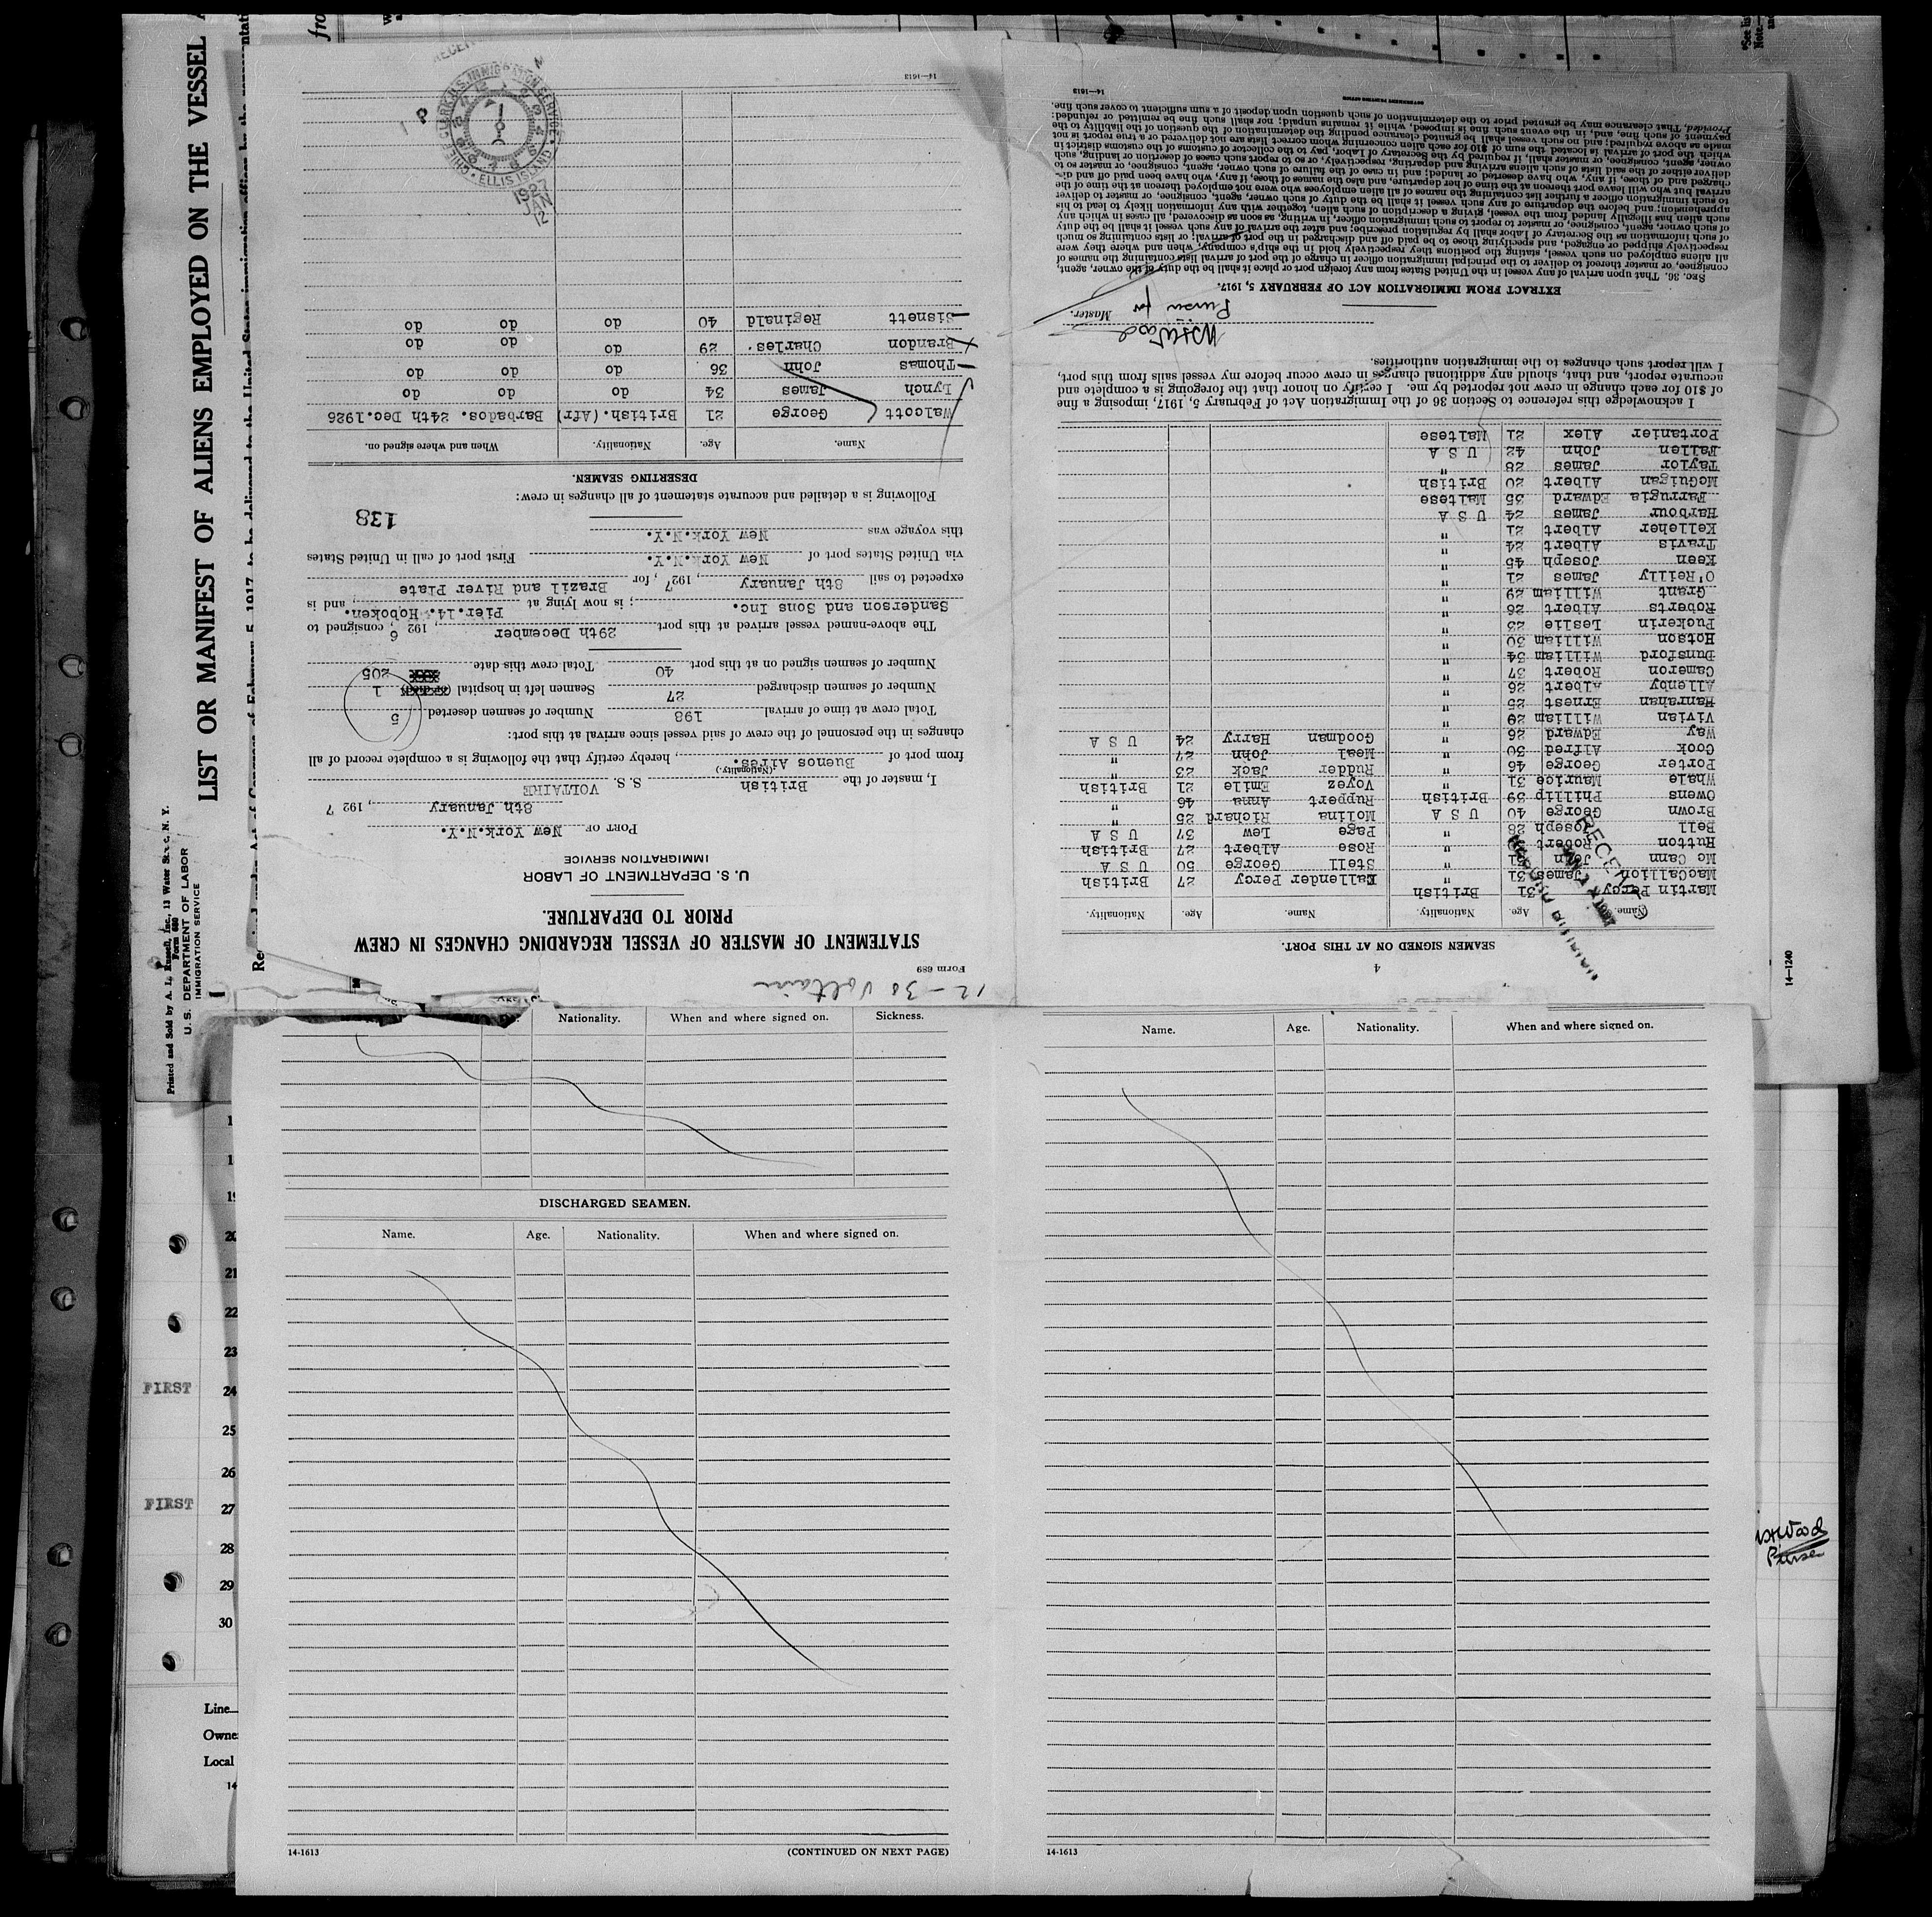 LIST OR MANIFEST OF ALIENS EMPLOYED ON THE VESSEL
Printed and Sold by A. L. Russell, Inc., 13 Water Street, N. Y.
Form 680
U. S. DEPARTMENT OF LABOR
IMMIGRATION SERVICE
12-30 Voltaire
Form 689
STATEMENT OF MASTER OF VESSEL REGARDING CHANGES IN CREW
PRIOR TO DEPARTURE.
U. S. DEPARTMENT OF LABOR
IMMIGRATION SERVICE
PORT OF New York.N.Y.
8th January, 192 7
I, master of the British S. S. VOLTAIRE
(Nationality.)
from port of Buenos Aires., hereby certify that the following is a complete record of all
changes in the personnel of the crew of said vessel since arrival at this port:
Total crew at time of arrival 198 Number of seamen deserted 5
Number of seamen discharged 27 Seamen left in hospital 1
Number of seamen signed on at this port 40 Total crew this date 205
The above-named vessel arrived at this port 29th December, 192 6, consigned to
Sanderson and Sons Inc.; is now lying at Pier.14. Hoboken., and is
expected to sail 8th January, 192 7, for Brazil and River Plate
via United States port of New York.N.Y. First port of call in United States
this voyage was New York.N.Y.
138
Following is a detailed and accurate statement of all changes in crew:
DESERTING SEAMEN.
Name. Age. Nationality. When and where signed on.
Walcott George 21 British.(Afr) Barbados. 24th Dec.1926
Lynch James 34 do do do
Thomas John 36 do do do
Brandon Charles. 29 do do do
Sisnett Reginald 40 do do do
CHIEF CLERK U.S. IMMIGRATION SERVICE ELLIS ISLAND
1927
JAN
12
14—1613
4
SEAMEN SIGNED ON AT THIS PORT.
Name. Age. Nationality. Name. Age. Nationality.
Martin Percy 31 British Callender Percy 27 British
MacCallion James 31 " Stell George 50 U S A
Mc Cann John " Rose Albert 27 British
Hutton Robert " Page Lew 37 U S A
Bell Joseph 28 " Molina Richard 25 "
Brown George 40 U S A Ruppert Anna 46 "
Owens Phillip 39 British Voyez Emile 21 British
Whale Maurice 31 " Rudder Jack 23 "
Porter George 46 " Meal John 27 "
Cook Alfred 30 " Goodman Harry 24 U S A
Way Edward 26 "
Vivian William 29 "
Hanrahan Ernest 25 "
Allenby Albert 26 "
Cameron Robert 37 "
Dunsford William 34 "
Hotson William 30 "
Puckerin Leslie 23 "
Roberts Albert 26 "
Grant William 29 "
O'Reilly James 21 "
Keen Joseph 45 "
Travis Albert 24 "
Kelleher Albert 21 "
Harbour James 24 U S A
Farrugia Edward 35 Maltese
McGuigan Albert 20 British
Taylor James 28 "
Fallen John 42 U S A
Portanier Alex 21 Maltese
RECEIVED
I acknowledge this reference to Section 36 of the Immigration Act of February 5, 1917, imposing a fine
of $10 for each change in crew not reported by me. I certify on honor that the foregoing is a complete and
accurate report, and that, should any additional changes in crew occur before my vessel sails from this port,
I will report such changes to the immigration authorities.
Purser for Master.
EXTRACT FROM IMMIGRATION ACT OF FEBRUARY 5, 1917.
SEC. 36. That upon arrival of any vessel in the United States from any foreign port or place it shall be the duty of the owner, agent,
consignee, or master thereof to deliver to the principal immigration officer in charge of the port of arrival lists containing the names of
all aliens employed on such vessel, stating the positions they respectively hold in the ship's company, when and where they were
respectively shipped or engaged, and specifying those to be paid off and discharged in the port of arrival; or lists containing so much
of such information as the Secretary of Labor shall by regulation prescribe; and after the arrival of any such vessel it shall be the duty
of such owner, agent, consignee, or master to report to such immigration officer, in writing, as soon as discovered, all cases in which any
such alien has illegally landed from the vessel, giving a description of such alien, together with any information likely to lead to his
apprehension; and before the departure of any such vessel it shall be the duty of such owner, agent, consignee, or master to deliver
to such immigration officer a further list containing the names of all alien employees who were not employed thereon at the time of the
arrival but who will leave port thereon at the time of her departure, and also the names of those, if any, who have been paid off and dis-
charged and of those, if any, who have deserted or landed; and in case of the failure of such owner, agent, consignee, or master so to
deliver either of the said lists of such aliens arriving and departing, respectively, or so to report such cases of desertion or landing, such
owner, agent, consignee, or master, shall, if required by the Secretary of Labor, pay to the collector of customs of the customs district in
which the port of arrival is located the sum of $10 for each alien concerning whom correct lists are not delivered or a true report is not
made as above required; and no such vessel shall be granted clearance pending the determination of the question of the liability to the
payment of such fine, and, in the event such fine is imposed, while it remains unpaid; nor shall such fine be remitted or refunded:
Provided, That clearance may be granted prior to the determination of such question upon deposit of a sum sufficient to cover such fine.
14—1613
14—1240
Nationality. When and where signed on. Sickness.
DISCHARGED SEAMEN.
Name. Age. Nationality. When and where signed on.
14-1613 (CONTINUED ON NEXT PAGE)
Name. Age. Nationality. When and where signed on.
14-1613
20
21
22
23
FIRST 24
25
26
FIRST 27
28
29
30
Line
Owne
Local
14
Wood
Purser